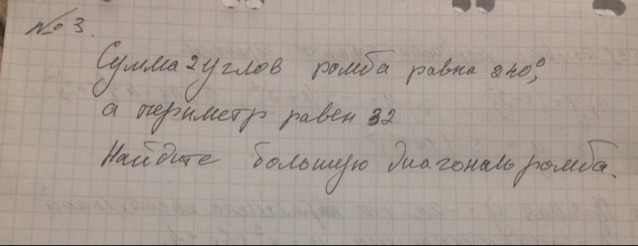 № 3.
Сумма 2 углов ромба равна 240°,
а периметр равен 32
Найдите большую диагональ ромба.